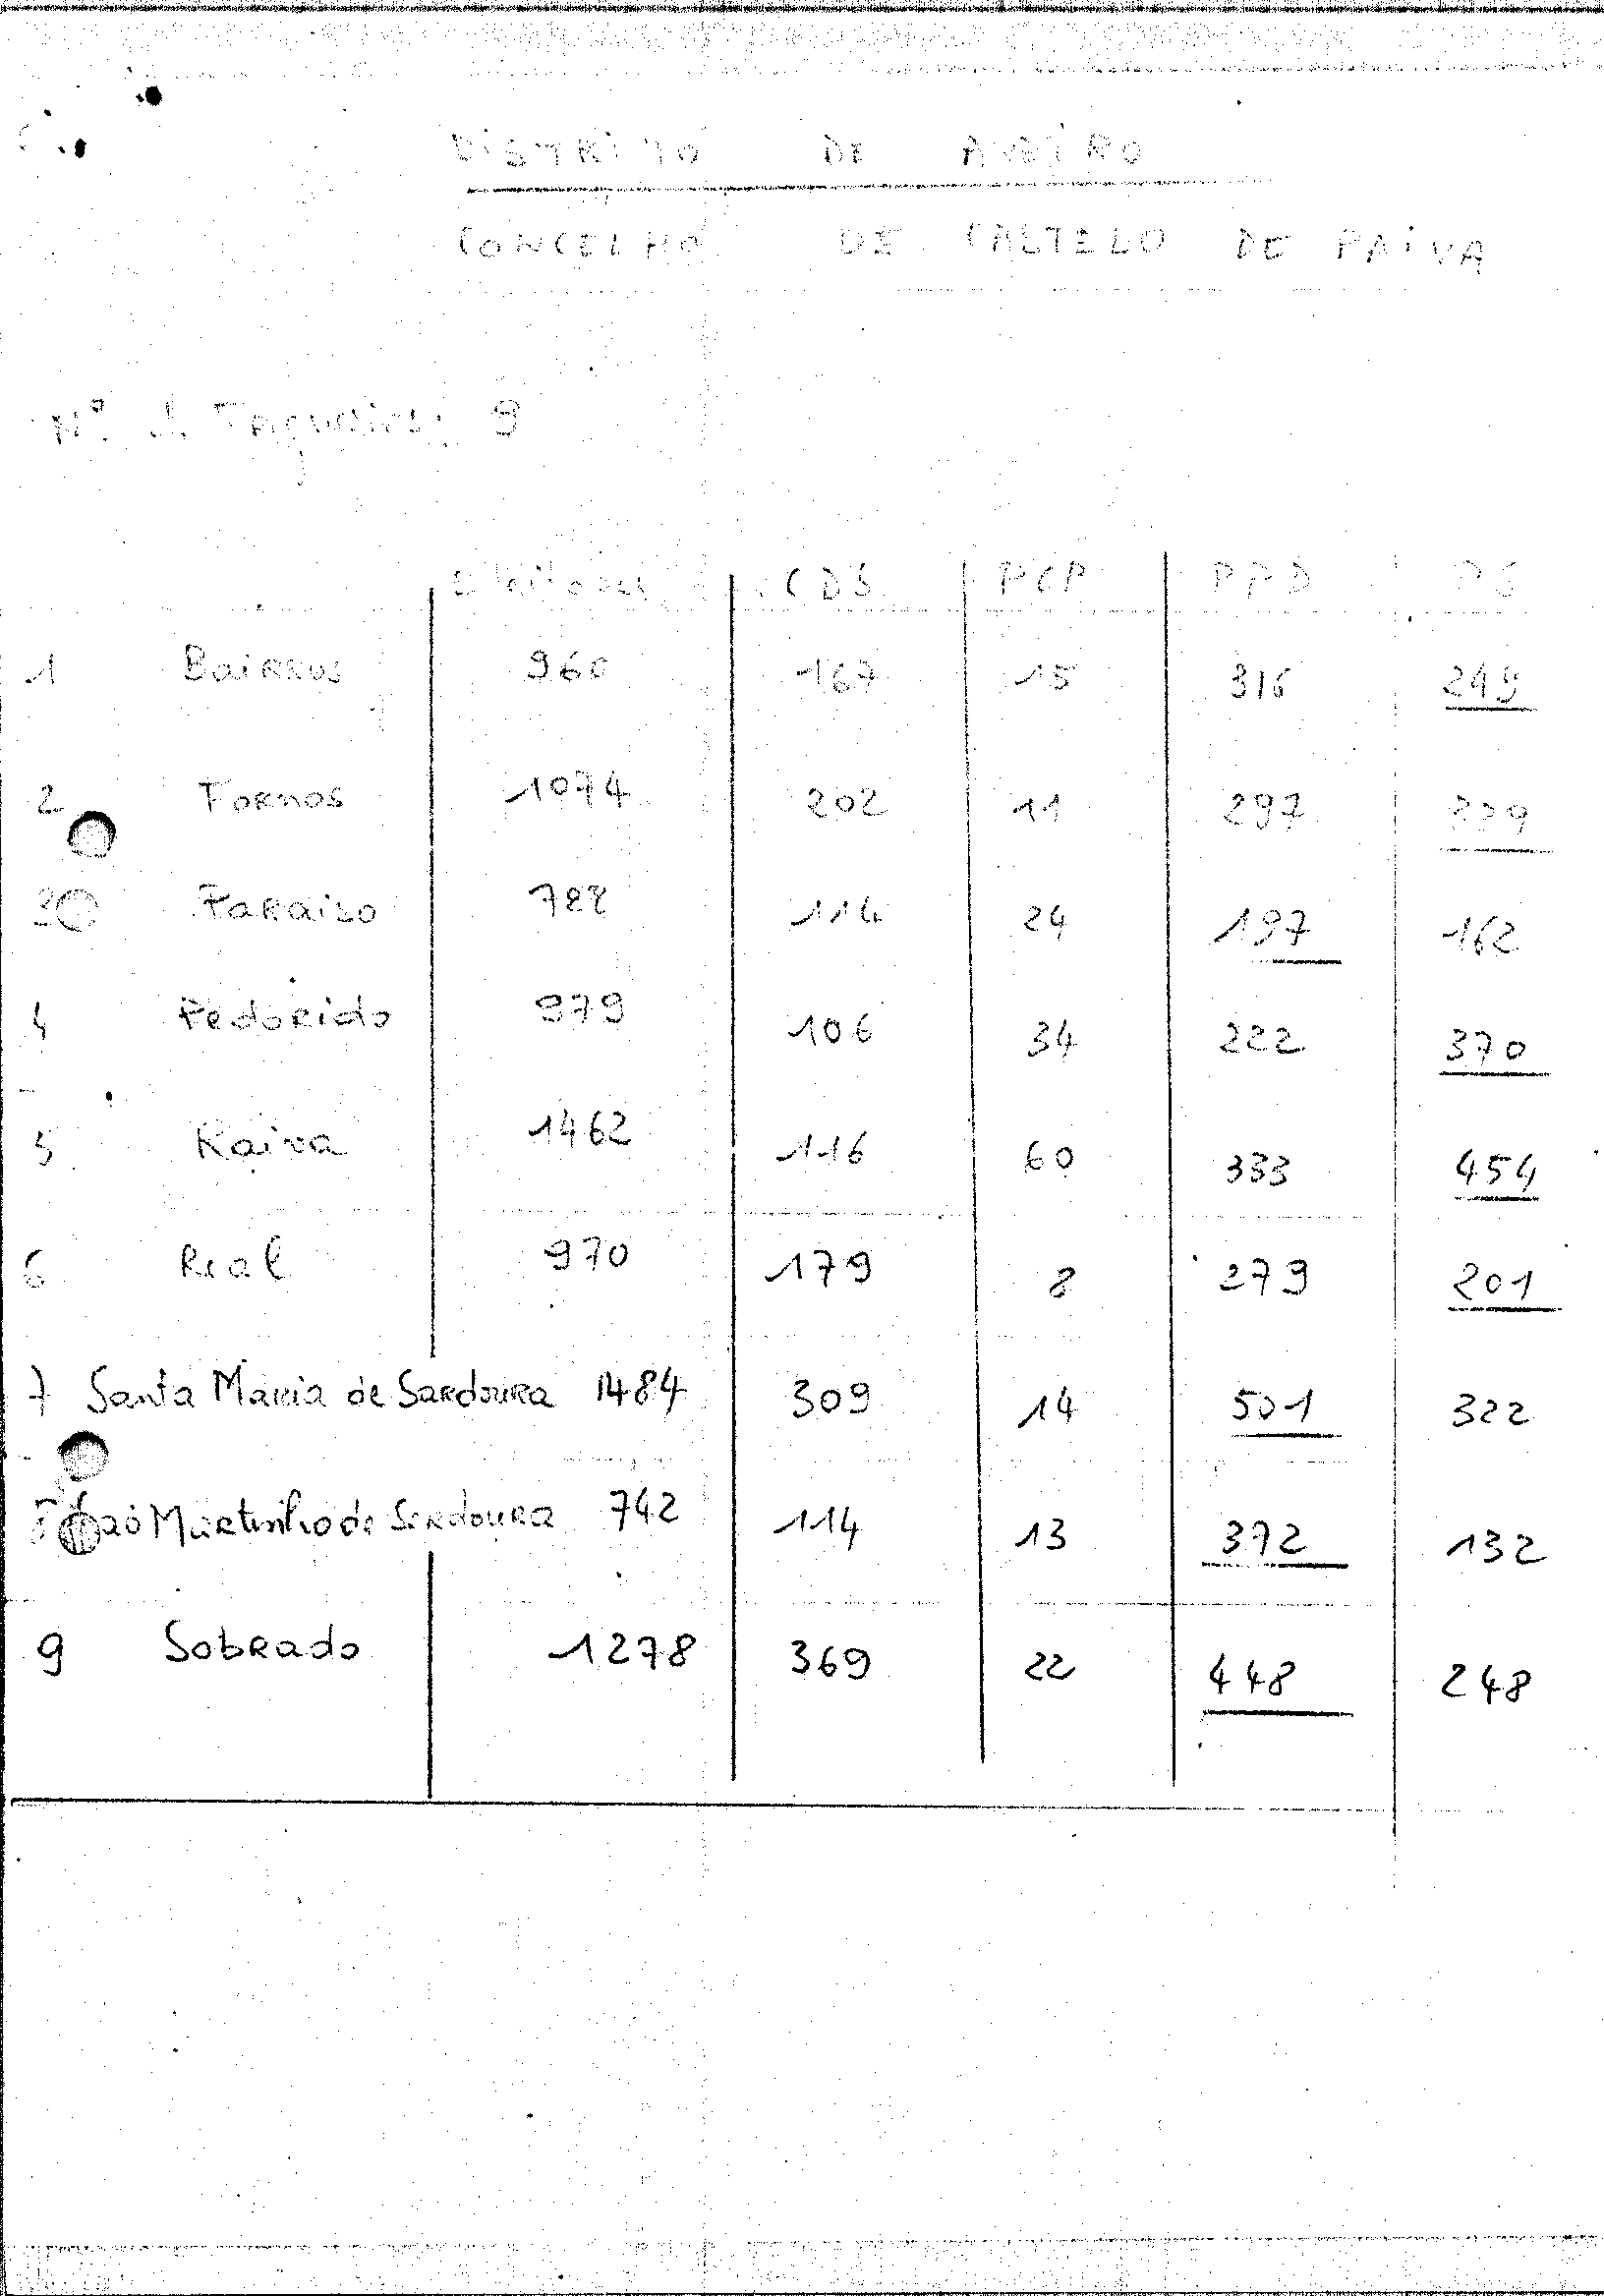 DISTRITO DE AVEIRO
CONCELHO DE CASTELO DE PAIVA
Nº. J. Freguesias: 9
Eleitores CDS PCP PPD PS
1 Bairros 960 167 15 316 249
2 Fornos 1074 202 11 297
3 Paraiso 788 114 24 197 162
4 Pedorido 979 106 34 222 370
5 Raiva 1462 116 60 333 454
6 Real 970 179 8 279 201
7 Santa Maria de Sardoura 1484 309 14 501 322
São Martinho de Sardoura 742 114 13 372 132
9 Sobrado 1278 369 22 448 248